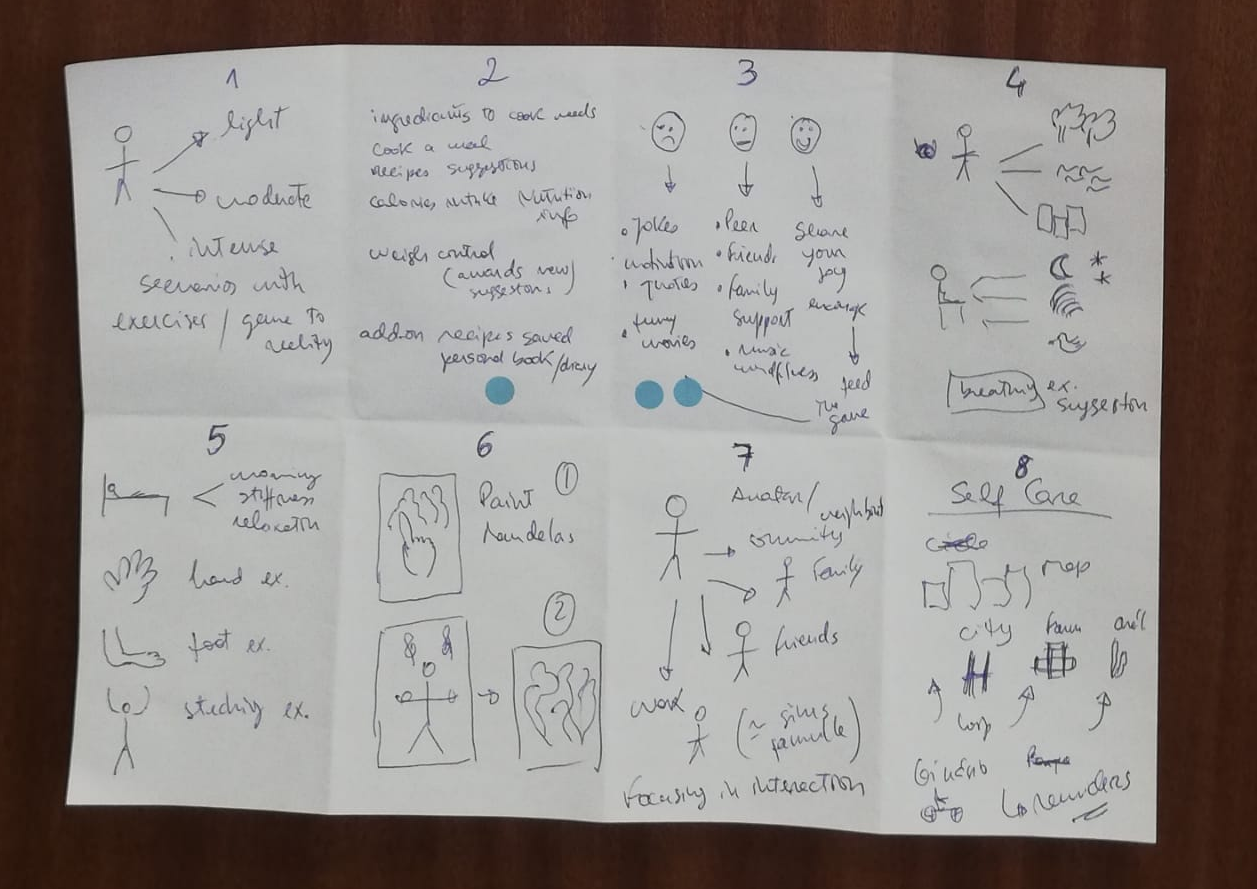 1
light
moderate
intense
scenarios with
exercises / game to
reality
2
ingredients to cook needs
cook a meal
recipes suggestions
calories intake nutrition
info
weigh control
(awards new)
suggestons
add-on recipes saved
personal book/diary
3
• Jokes
motivation
• quotes
• funny
movies
• Peer
• friends
• family
support
• music
share
your
joy
feed
the
game
4
breathing ex.
suggestion
5
morning
stiffness
relaxation
hand ex.
foot ex.
6
1
Paint
Mandelas
2
7
Avatar/
family
friends
work
(~ sims
Focusing in interaction
8
Self Care
map
city
farm
reminders